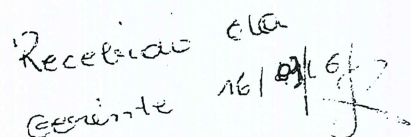 Recebido da
gerente 16/09/16